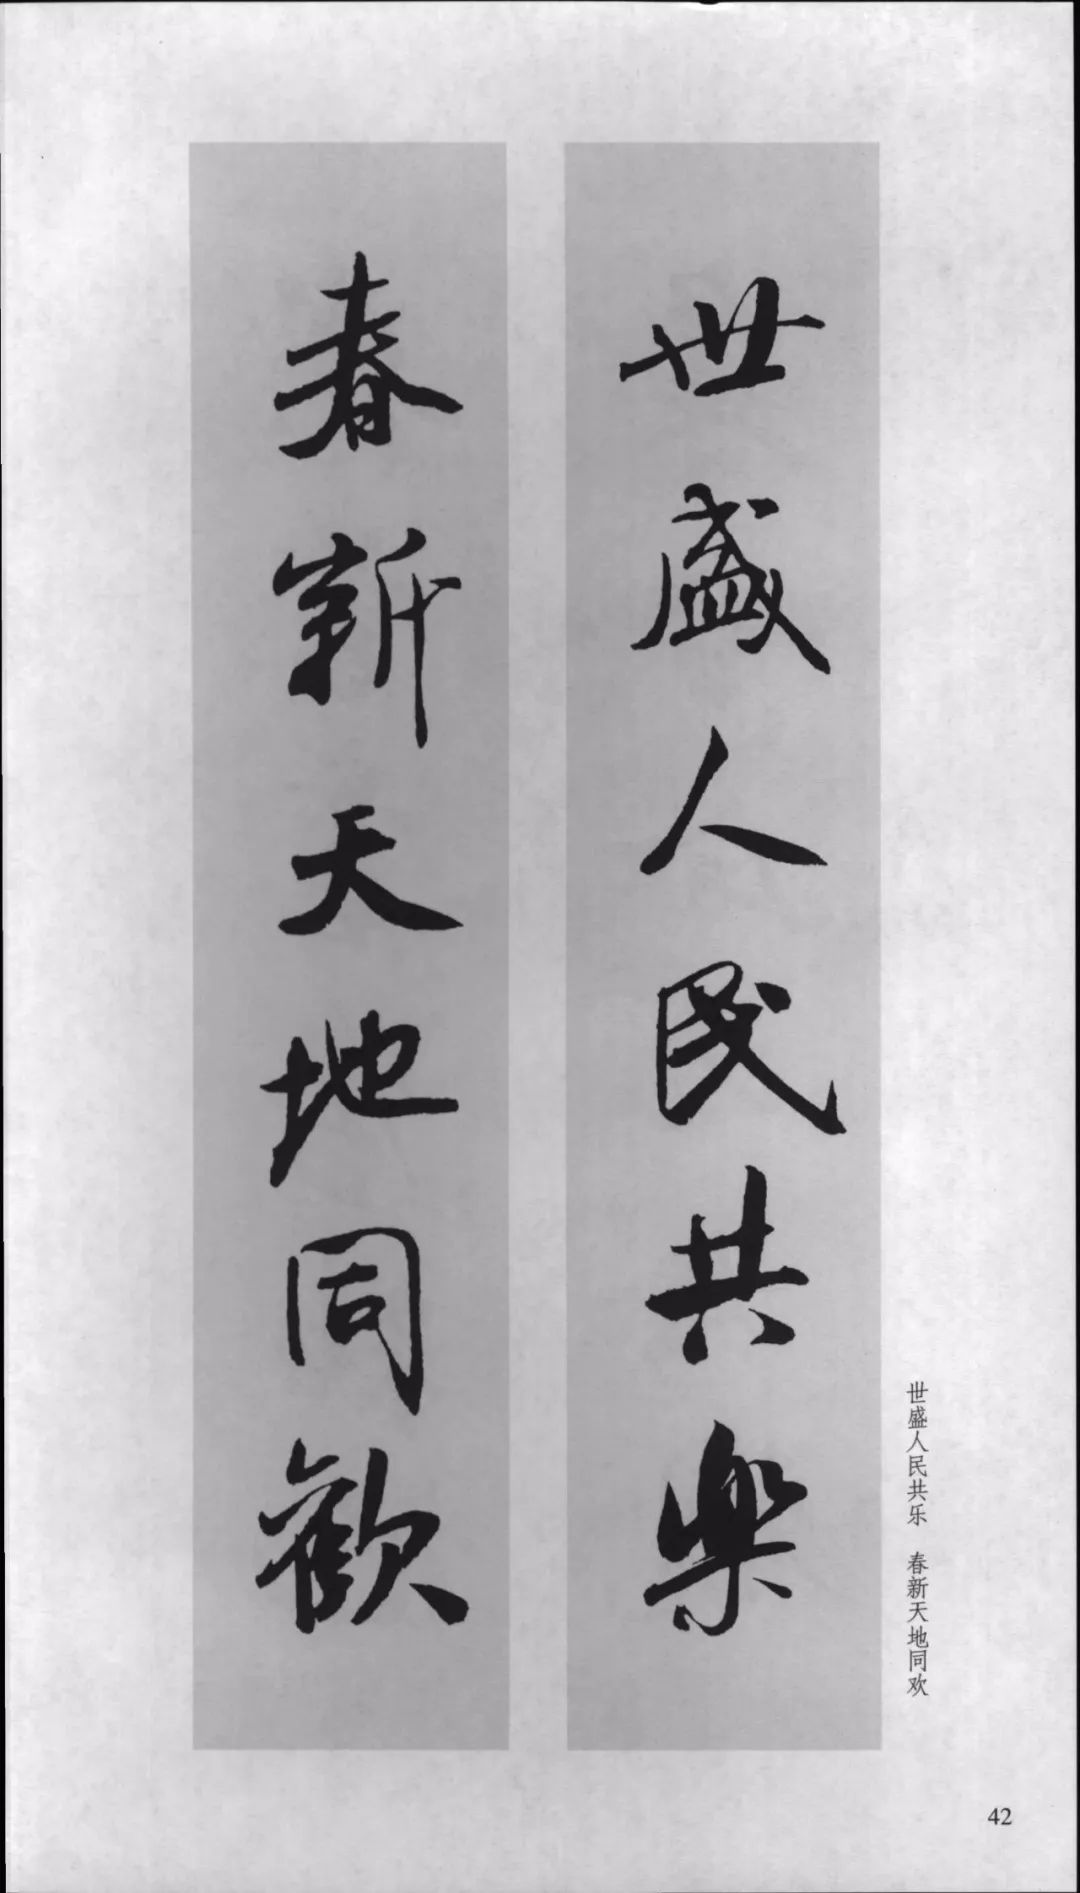 世盛人民共樂
春新天地同歡
世盛人民共乐 春新天地同欢
42